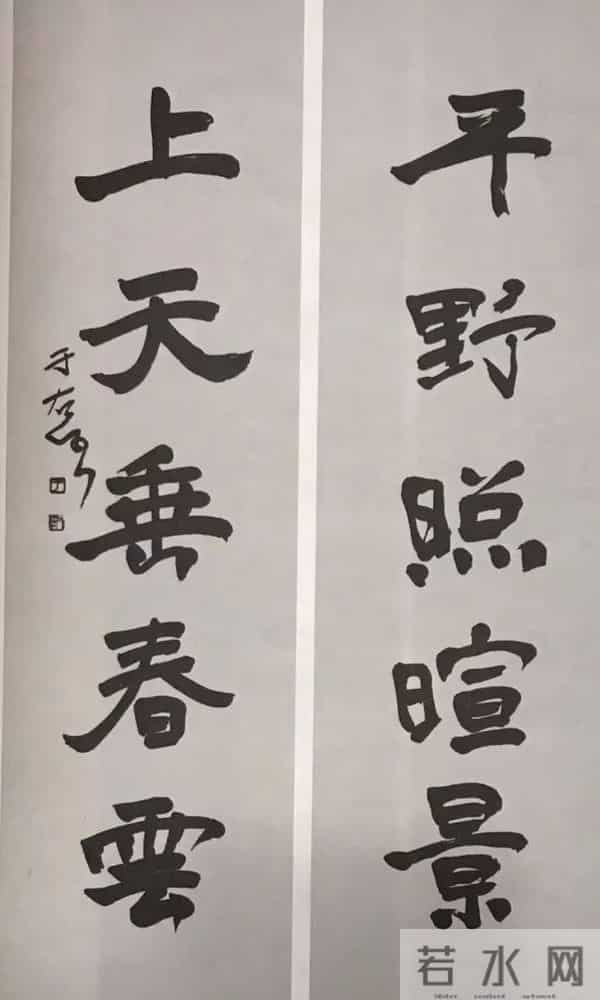 平野照暄景
上天垂春雲
于右
若水网